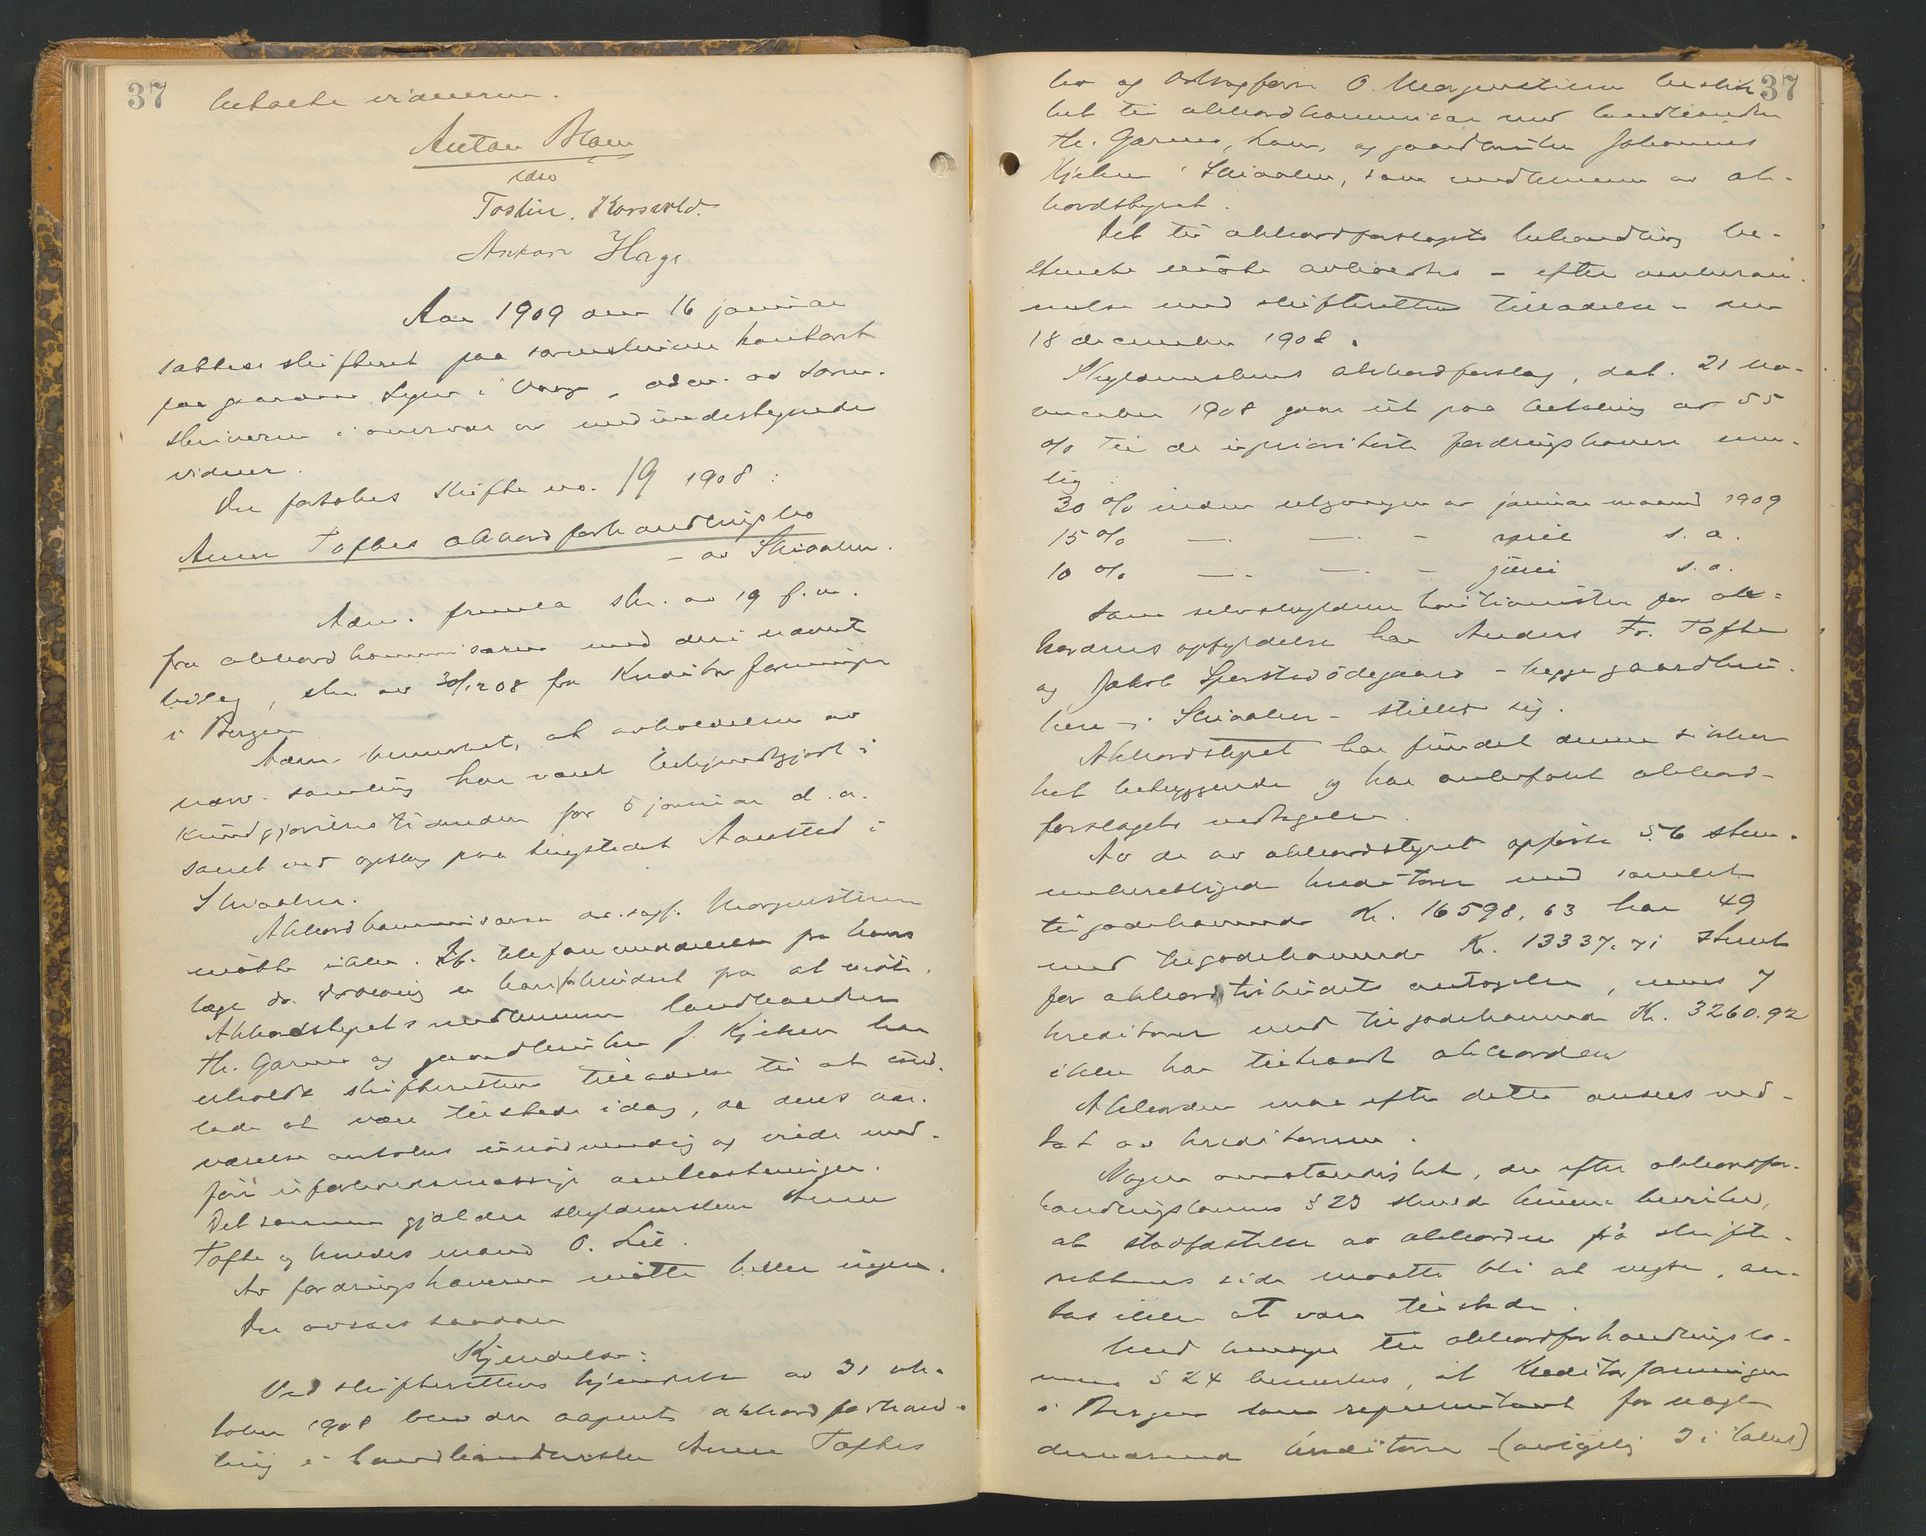 37
betalte vidnerne.
Anton Blom
Tostin. Korsvold.
Anton Hage
Aar 1909 den 16 januar
sattes skifteret paa sorenskriverens kontor
paa gaarden i Vaage, adm. av soren-
skriveren i overvær av medundertegnede
vidner.
Der foretokes skifte no. 19 1908:
Anne Toftes akkordforhandlingsbo
- av Skiaaker.
Adm. fremla skr. av 19 f.m.
fra akkordkommissæren med deri nævnt
bilag, skr av 30/12 08 fra Kreditorforeningen
i Bergen
Adm. bemerket, at avholdelsen av
nærv. samling har været bekjendtgjort i
Kundgjørelsestidenden for 5 januar d. a.
samt ved opslag paa tingstedet Aanstad i
Skiaaker.
Akkordkommissæren o.r.sagf. Morgenstierne
møtte ikke. If. telefonmeddelelse fra hans
læge dr. er han forhindret fra at møte.
Akkordstyrets medlemmer landhandler
Th. Garmo og gaardbruker J. Kjeken har
erholdt skifterettens tilladelse til at und-
lade at være tilstede idag, da deres nær-
værelse antokes unødvendig og vilde med-
føre uforholdsmæssige omkostninger.
Det samme gjælder skyldnersken Anne
Tofte og hendes mand O. Lie.
Av fordringshaverne møtte heller ingen.
Der avsaes saadan
Kjendelse:
Ved skifterettens kjendelse av 31 ok-
tober 1908 blev der aapnet akkordforhand-
ling i landhandlerske Anne Toftes
37
bo og o.r.sagfører O. Morgenstierne beskik-
ket til akkordkommissær med landhandler
Th. Garmo, Lom, og gaardbruker Johannes
Kjeken i Skiaaker, som medlemmer av ak-
kordstyret.
Det til akkordforslagets behandling be-
stemte møte avholdtes - efter omberam-
melse med skifterettens tilladelse - den
18 december 1908.
Skyldnerskens akkordforslag, dat. 21 no-
vember 1908 gaar ut paa betaling av 55
o/o til de uprioriterte fordringshavere nem-
lig:
30 o/o inden utgangen av januar maaned 1909
15 o/o —. —. - april s. a.
10 o/o —. —. - juli s. a.
Som selvskyldnerkautionister for ak-
kordens opfyldelse har Anders Fr. Tofte
og Jakob Sperstadødegaard - begge gaardbru-
kere - i Skiaaker - stillet sig.
Akkordstyret har fundet denne sikker-
het betryggende og har anbefalt akkord-
forslagets vedtagelse.
Av de av akkordstyret opførte 56 stem-
meberettigede kreditorer med samlet
tilgodehavende Kr. 16598,63 har 49
med tilgodehavende Kr. 13337.71 stemt
for akkordtilbudets antagelse, mens 7
kreditorer med tilgodehavende Kr. 3260.92
ikke har tiltraadt akkorden
Akkorden maa efter dette ansees ved-
tat av kreditorerne.
Nogen omstændighet, der efter akkordfor-
handlingslovens § 23 skulde kunne bevirke,
at stadfæstelse av akkorden fra skifte-
rettens side maatte bli at negte, an-
tas ikke at være tilstede.
Med hensyn til akkordforhandlingslo-
vens § 24 bemerkes, at Kreditorforeningen
i Bergen som representant for nogle
derværende kreditorer (avgivelig 3 i tallet)